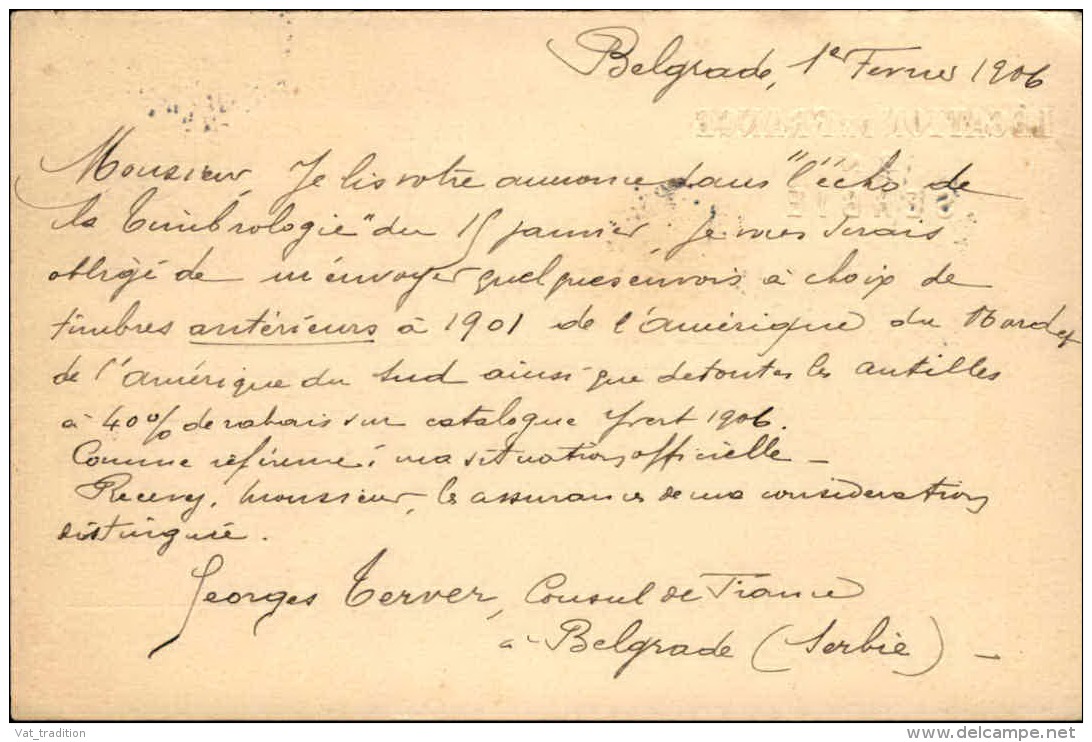 Belgrade, 1e Fevrier 1906
LÉGATION DE FRANCE
EN
SERBIE
Monsieur, Je lis votre annonce dans "l'écho de
la Timbrologie" du 15 janvier. Je vous serais
obligé de m'envoyer quelques envois à choix de
timbres antérieurs à 1901 de l'amérique du Nord et
de l'amérique du Sud ainsi que de toutes les antilles
à 40% de rabais sur catalogue Yvert 1906.
Comme référence : ma situation officielle _
Recevez, Monsieur, les assurances de ma considération
distinguée.
Georges Terver, Consul de France
à Belgrade (Serbie) _
Vat_tradition
delcampe.net